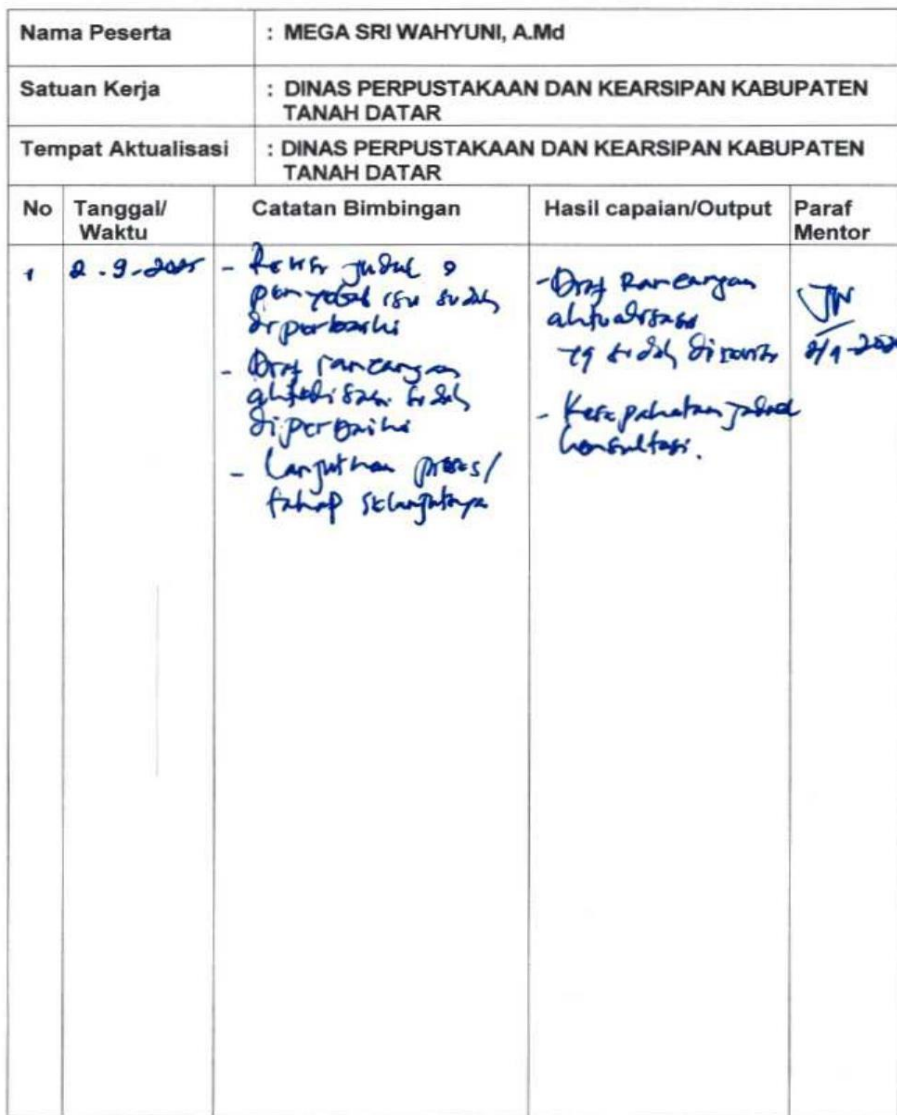 Nama Peserta : MEGA SRI WAHYUNI, A.Md
Satuan Kerja : DINAS PERPUSTAKAAN DAN KEARSIPAN KABUPATEN
TANAH DATAR
Tempat Aktualisasi : DINAS PERPUSTAKAAN DAN KEARSIPAN KABUPATEN
TANAH DATAR
No Tanggal/ Catatan Bimbingan Hasil capaian/Output Paraf
Waktu Mentor
1 2-9-2025
- Revisi judul
penyebab isu sudah
diperbaiki
- Draf rancangan
aktualisasi sudah
diperbaiki
- Lanjutkan proses/
tahap selanjutnya
- Draf Rancangan
aktualisasi
yg sudah direvisi
- Kesepakatan jadwal
konsultasi.